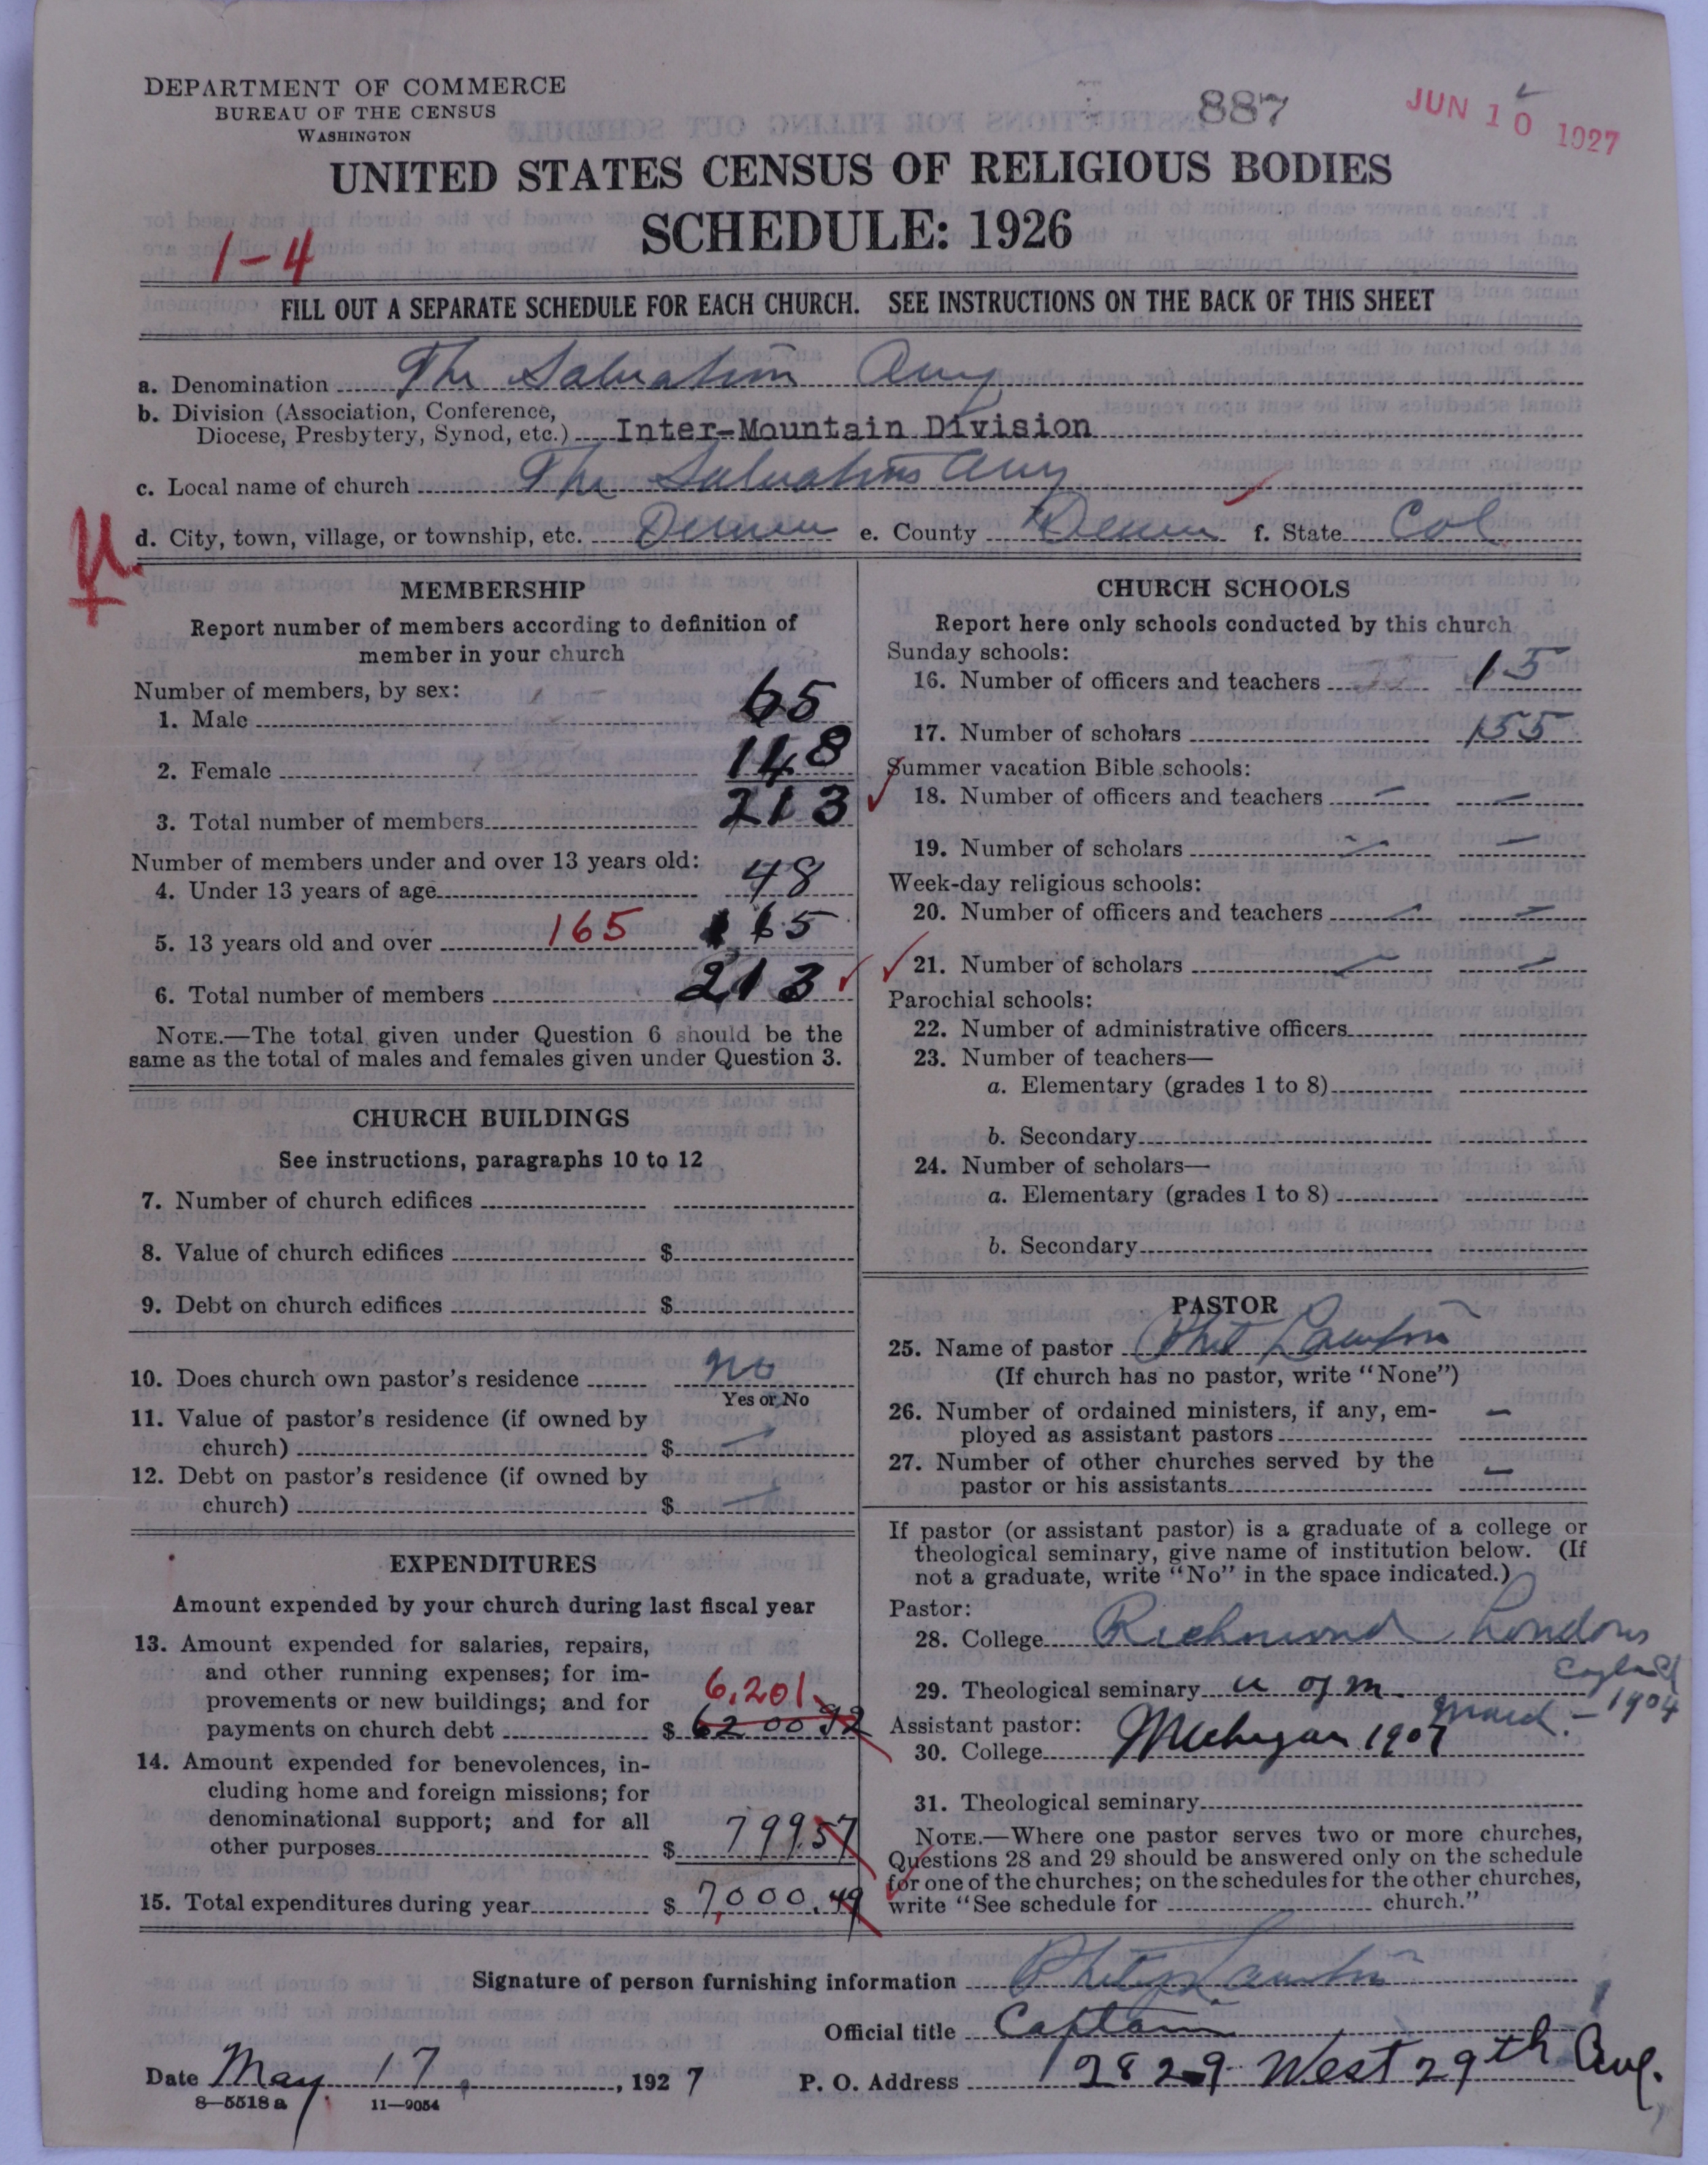 DEPARTMENT OF COMMERCE
BUREAU OF THE CENSUS
WASHINGTON
887
JUN 10 1927
UNITED STATES CENSUS OF RELIGIOUS BODIES
SCHEDULE: 1926
1-4
FILL OUT A SEPARATE SCHEDULE FOR EACH CHURCH. SEE INSTRUCTIONS ON THE BACK OF THIS SHEET
a. Denomination The Salvation Army
b. Division (Association, Conference,
Diocese, Presbytery, Synod, etc.) Inter-Mountain Division
c. Local name of church The Salvation Army
d. City, town, village, or township, etc. Denver e. County Denver f. State Col
MEMBERSHIP
Report number of members according to definition of
member in your church
Number of members, by sex:
1. Male 65
2. Female 148
3. Total number of members 213
Number of members under and over 13 years old:
4. Under 13 years of age 48
5. 13 years old and over 165 165
6. Total number of members 213
NOTE.—The total given under Question 6 should be the
same as the total of males and females given under Question 3.
CHURCH BUILDINGS
See instructions, paragraphs 10 to 12
7. Number of church edifices
8. Value of church edifices $
9. Debt on church edifices $
10. Does church own pastor's residence No
Yes or No
11. Value of pastor's residence (if owned by
church) $ —
12. Debt on pastor's residence (if owned by
church) $ —
EXPENDITURES
Amount expended by your church during last fiscal year
13. Amount expended for salaries, repairs,
and other running expenses; for im-
provements or new buildings; and for
6,201
payments on church debt $ 6200 92
14. Amount expended for benevolences, in-
cluding home and foreign missions; for
denominational support; and for all
other purposes $ 799.57
15. Total expenditures during year $ 7,000.49
CHURCH SCHOOLS
Report here only schools conducted by this church
Sunday schools:
16. Number of officers and teachers 15
17. Number of scholars 155
Summer vacation Bible schools:
18. Number of officers and teachers — —
19. Number of scholars — —
Week-day religious schools:
20. Number of officers and teachers — —
21. Number of scholars — —
Parochial schools:
22. Number of administrative officers
23. Number of teachers—
a. Elementary (grades 1 to 8)
b. Secondary
24. Number of scholars—
a. Elementary (grades 1 to 8)
b. Secondary
PASTOR
25. Name of pastor Phil Lawton
(If church has no pastor, write "None")
26. Number of ordained ministers, if any, em-
ployed as assistant pastors —
27. Number of other churches served by the
pastor or his assistants —
If pastor (or assistant pastor) is a graduate of a college or
theological seminary, give name of institution below. (If
not a graduate, write "No" in the space indicated.)
Pastor:
28. College Richmond London
England
29. Theological seminary U of M. 1904
Assistant pastor:
30. College Michigan 1907
31. Theological seminary
NOTE.—Where one pastor serves two or more churches,
Questions 28 and 29 should be answered only on the schedule
for one of the churches; on the schedules for the other churches,
write "See schedule for church."
Signature of person furnishing information Lawton
Official title Captain
Date May 17, 1927 P. O. Address 2829 West 29th Ave.
8—5518a 11—9054